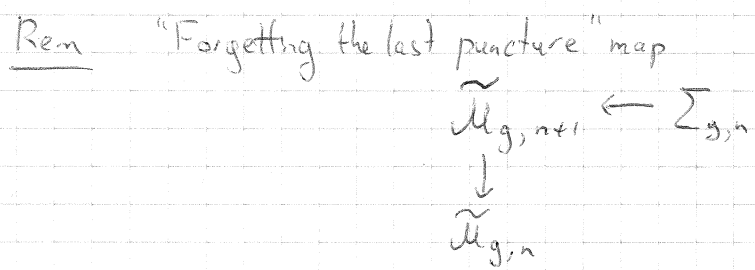 Rem "Forgetting the last puncture" map
M̃_{g,n+1} ← Σ_{g,n}
↓
M̃_{g,n}